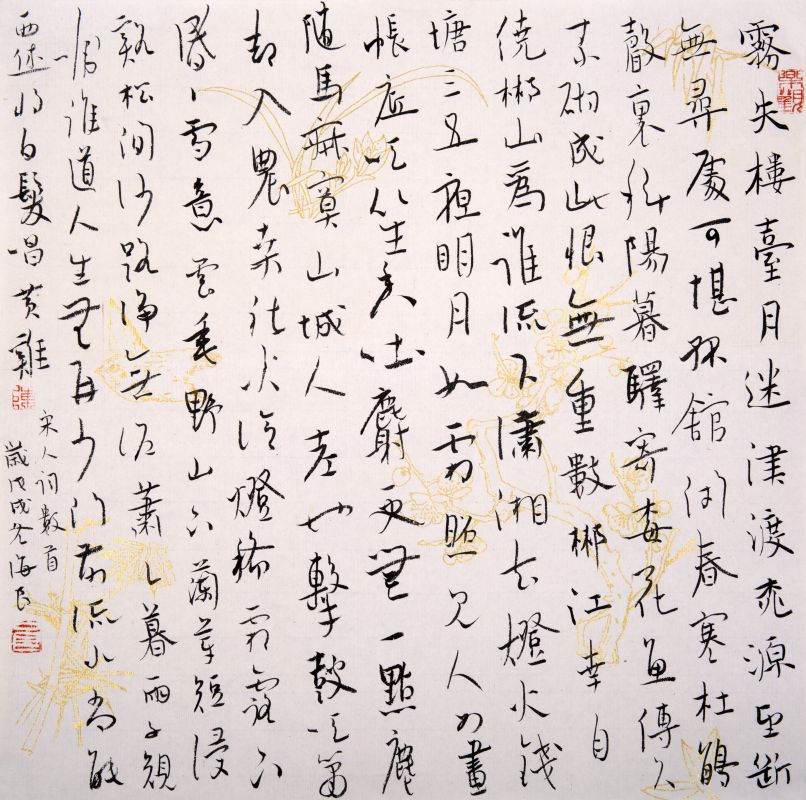 霧失樓臺月迷津渡桃源望斷
無尋處可堪孤館閉春寒杜鵑
聲裏斜陽暮驛寄梅花魚傳尺
素砌成此恨無重數郴江幸自
繞郴山為誰流下瀟湘去燈火錢
塘三五夜明月如霜照見人如畫
帳底吹笙香吐麝更無一點塵
隨馬寂寞山城人老也擊鼓吹簫
却入農桑社火冷燈稀霜露下
昏々雪意雲垂野山下蘭芽短浸
谿松間沙路淨無泥蕭々暮雨子規
啼誰道人生無再少門前流水尚能
西休將白髮唱黃雞
宋人詞數首
歲戊戌冬海良